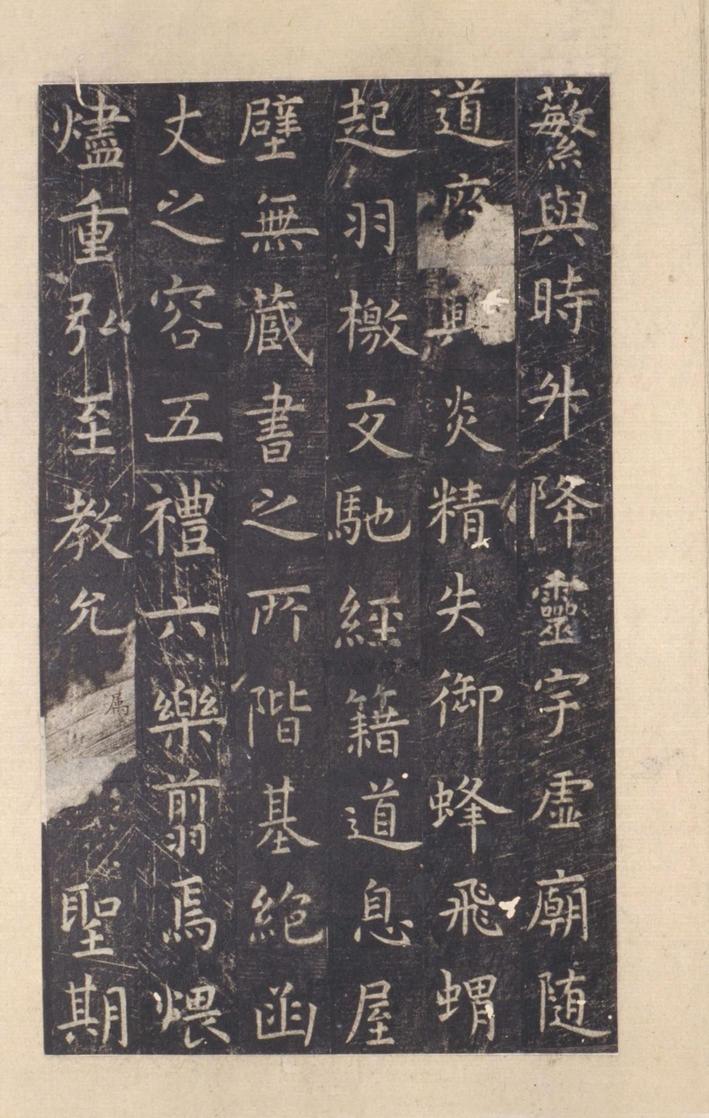 蘩與時升降靈宇虛廟隨
道廢興炎精失御蜂飛蝟
起羽檄交馳經籍道息屋
壁無藏書之所階基絕函
丈之容五禮六樂翦焉煨
燼重弘至教允属聖期